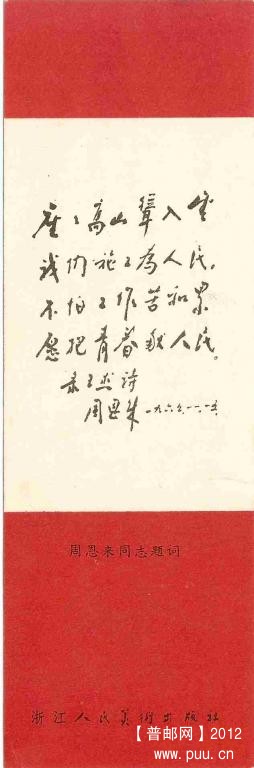 座々高山聳入雲
我们施工为人民，
不怕工作苦和累
愿把青春献人民。
录王杰诗
周恩来 一九六五.一一.
周恩来同志题词
浙江人民美术出版社
【普邮网】2012
www.puu.cn